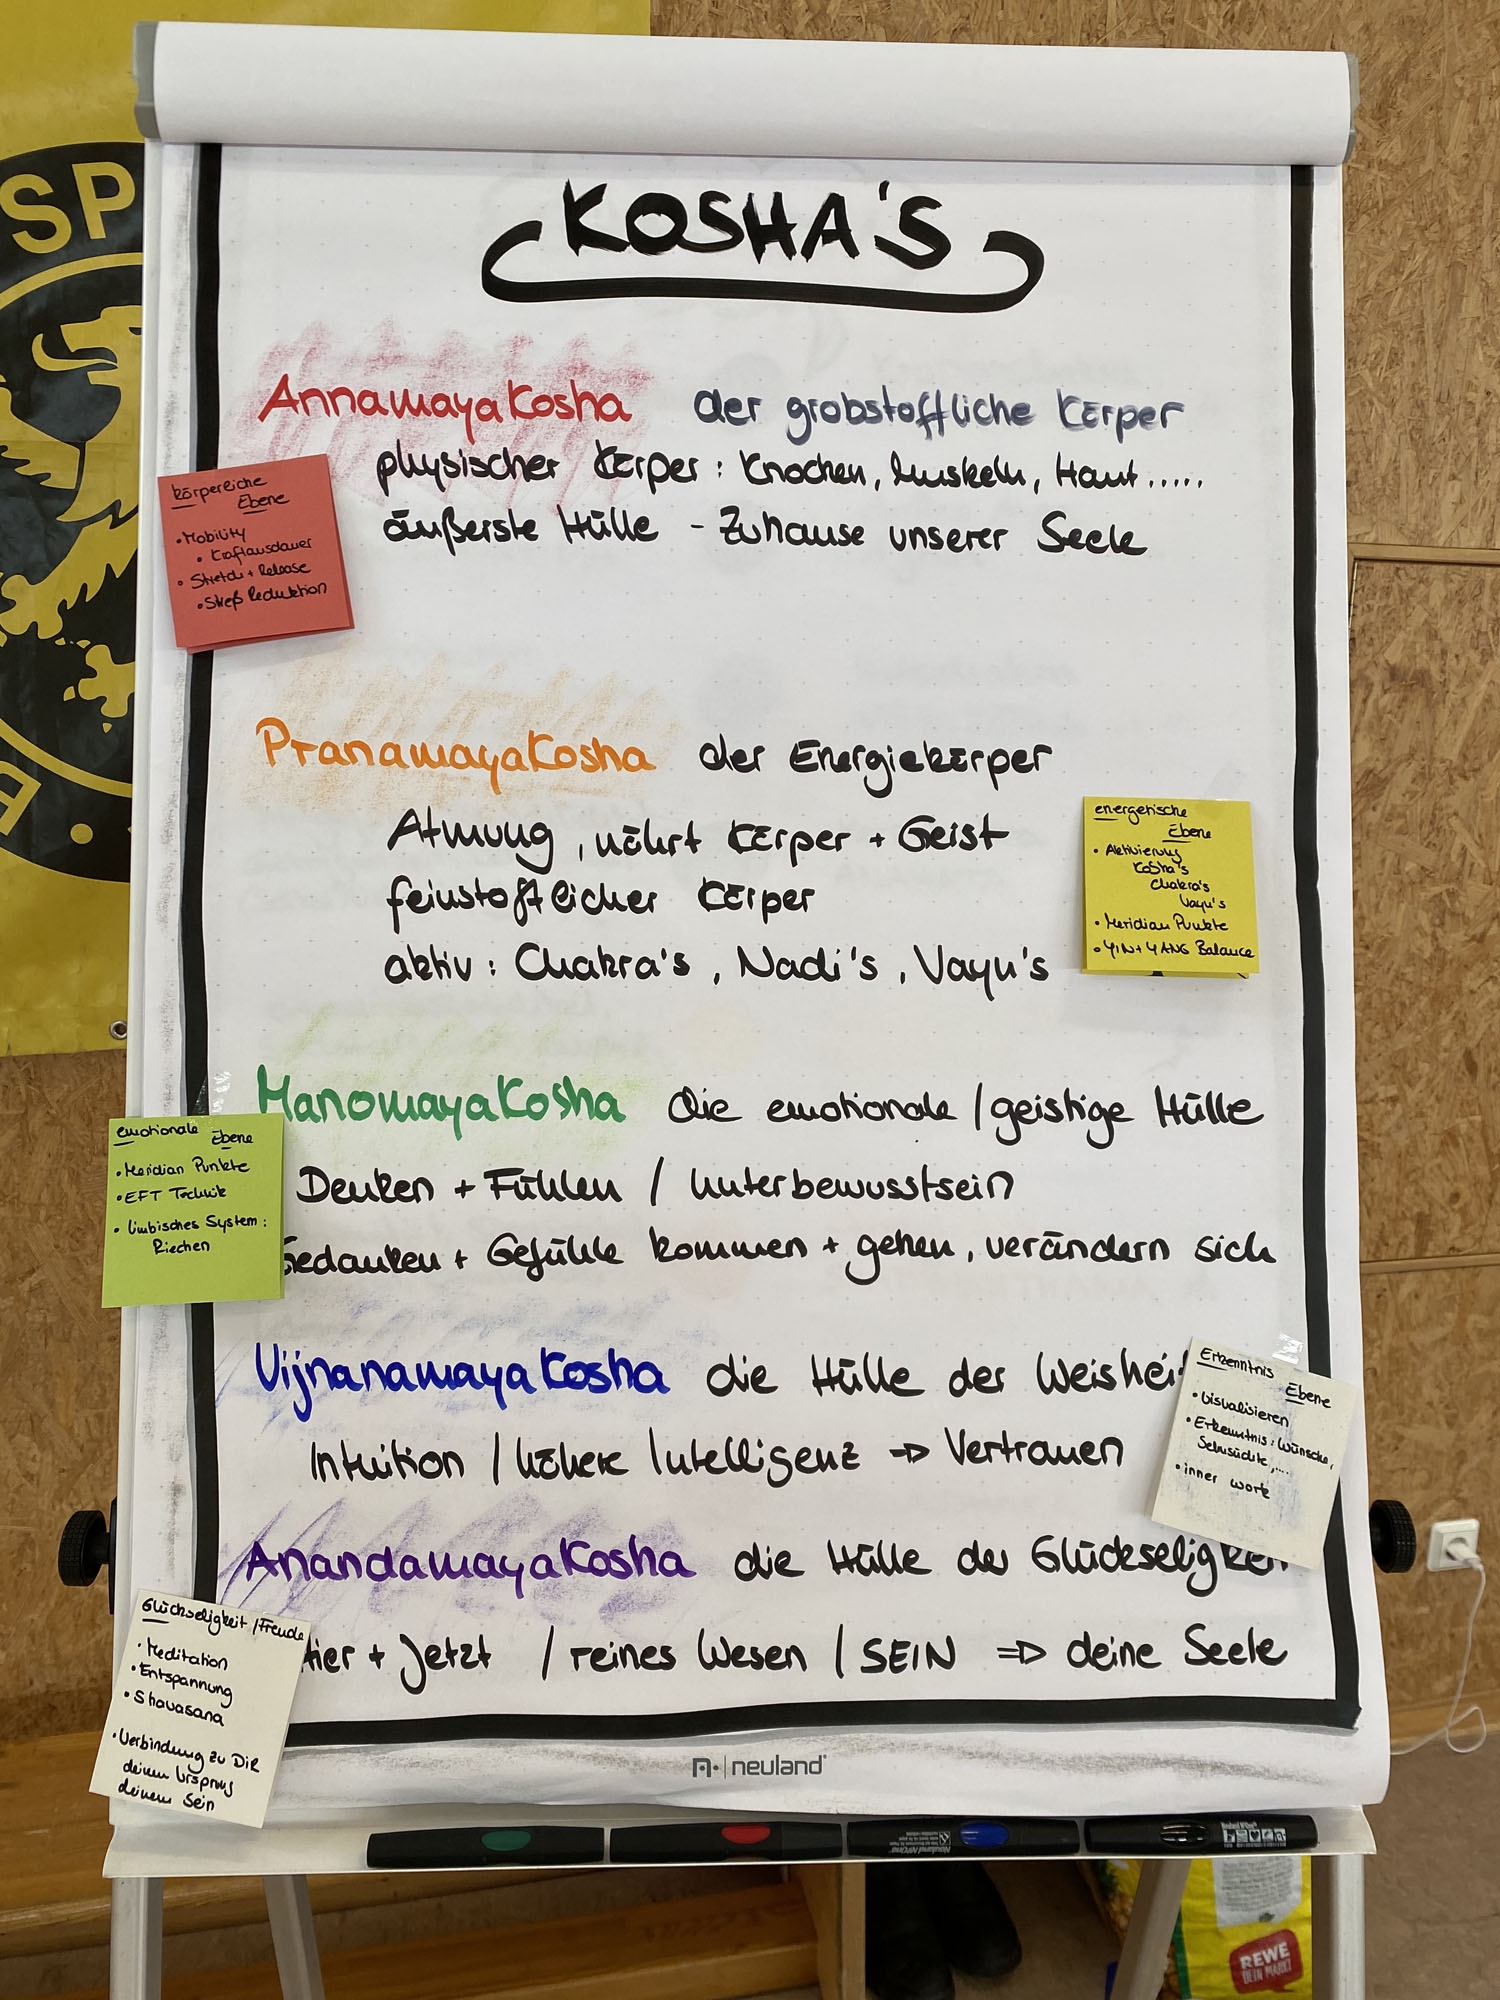 KOSHA'S
AnnamayaKosha der grobstoffliche Körper
physischer Körper: Knochen, Muskeln, Haut.....
äußerste Hülle - Zuhause unserer Seele
körpereiche
Ebene
• Mobility
• Kraftausdauer
• Stretch + Release
• Streß Reduktion
PranamayaKosha der Energiekörper
Atmung, nährt Körper + Geist
feinstofflicher Körper
aktiv: Chakra's, Nadi's, Vayu's
energetische
Ebene
• Aktivierung
Kosha's
Chakra's
Vayu's
• Meridian Punkte
• YIN + YANG Balance
ManomayaKosha die emotionale / geistige Hülle
Denken + Fühlen / Unterbewusstsein
Gedanken + Gefühle kommen + gehen, verändern sich
emotionale Ebene
• Meridian Punkte
• EFT Technik
• limbisches System:
Riechen
VijnanamayaKosha die Hülle der Weisheit
Intuition / höhere Intelligenz ⇒ Vertrauen
Erkenntnis
Ebene
• Visualisieren
• Erkenntnis: Wünsche,
Sehnsüchte,....
• inner work
AnandamayaKosha die Hülle der Glückseligkeit
Hier + Jetzt / reines Wesen / SEIN ⇒ deine Seele
Glückseligkeit / Freude
• Meditation
• Entspannung
• Shavasana
• Verbindung zu DIR
deinem Ursprung
deinem Sein
neuland
SP
REWE
DEIN MARKT